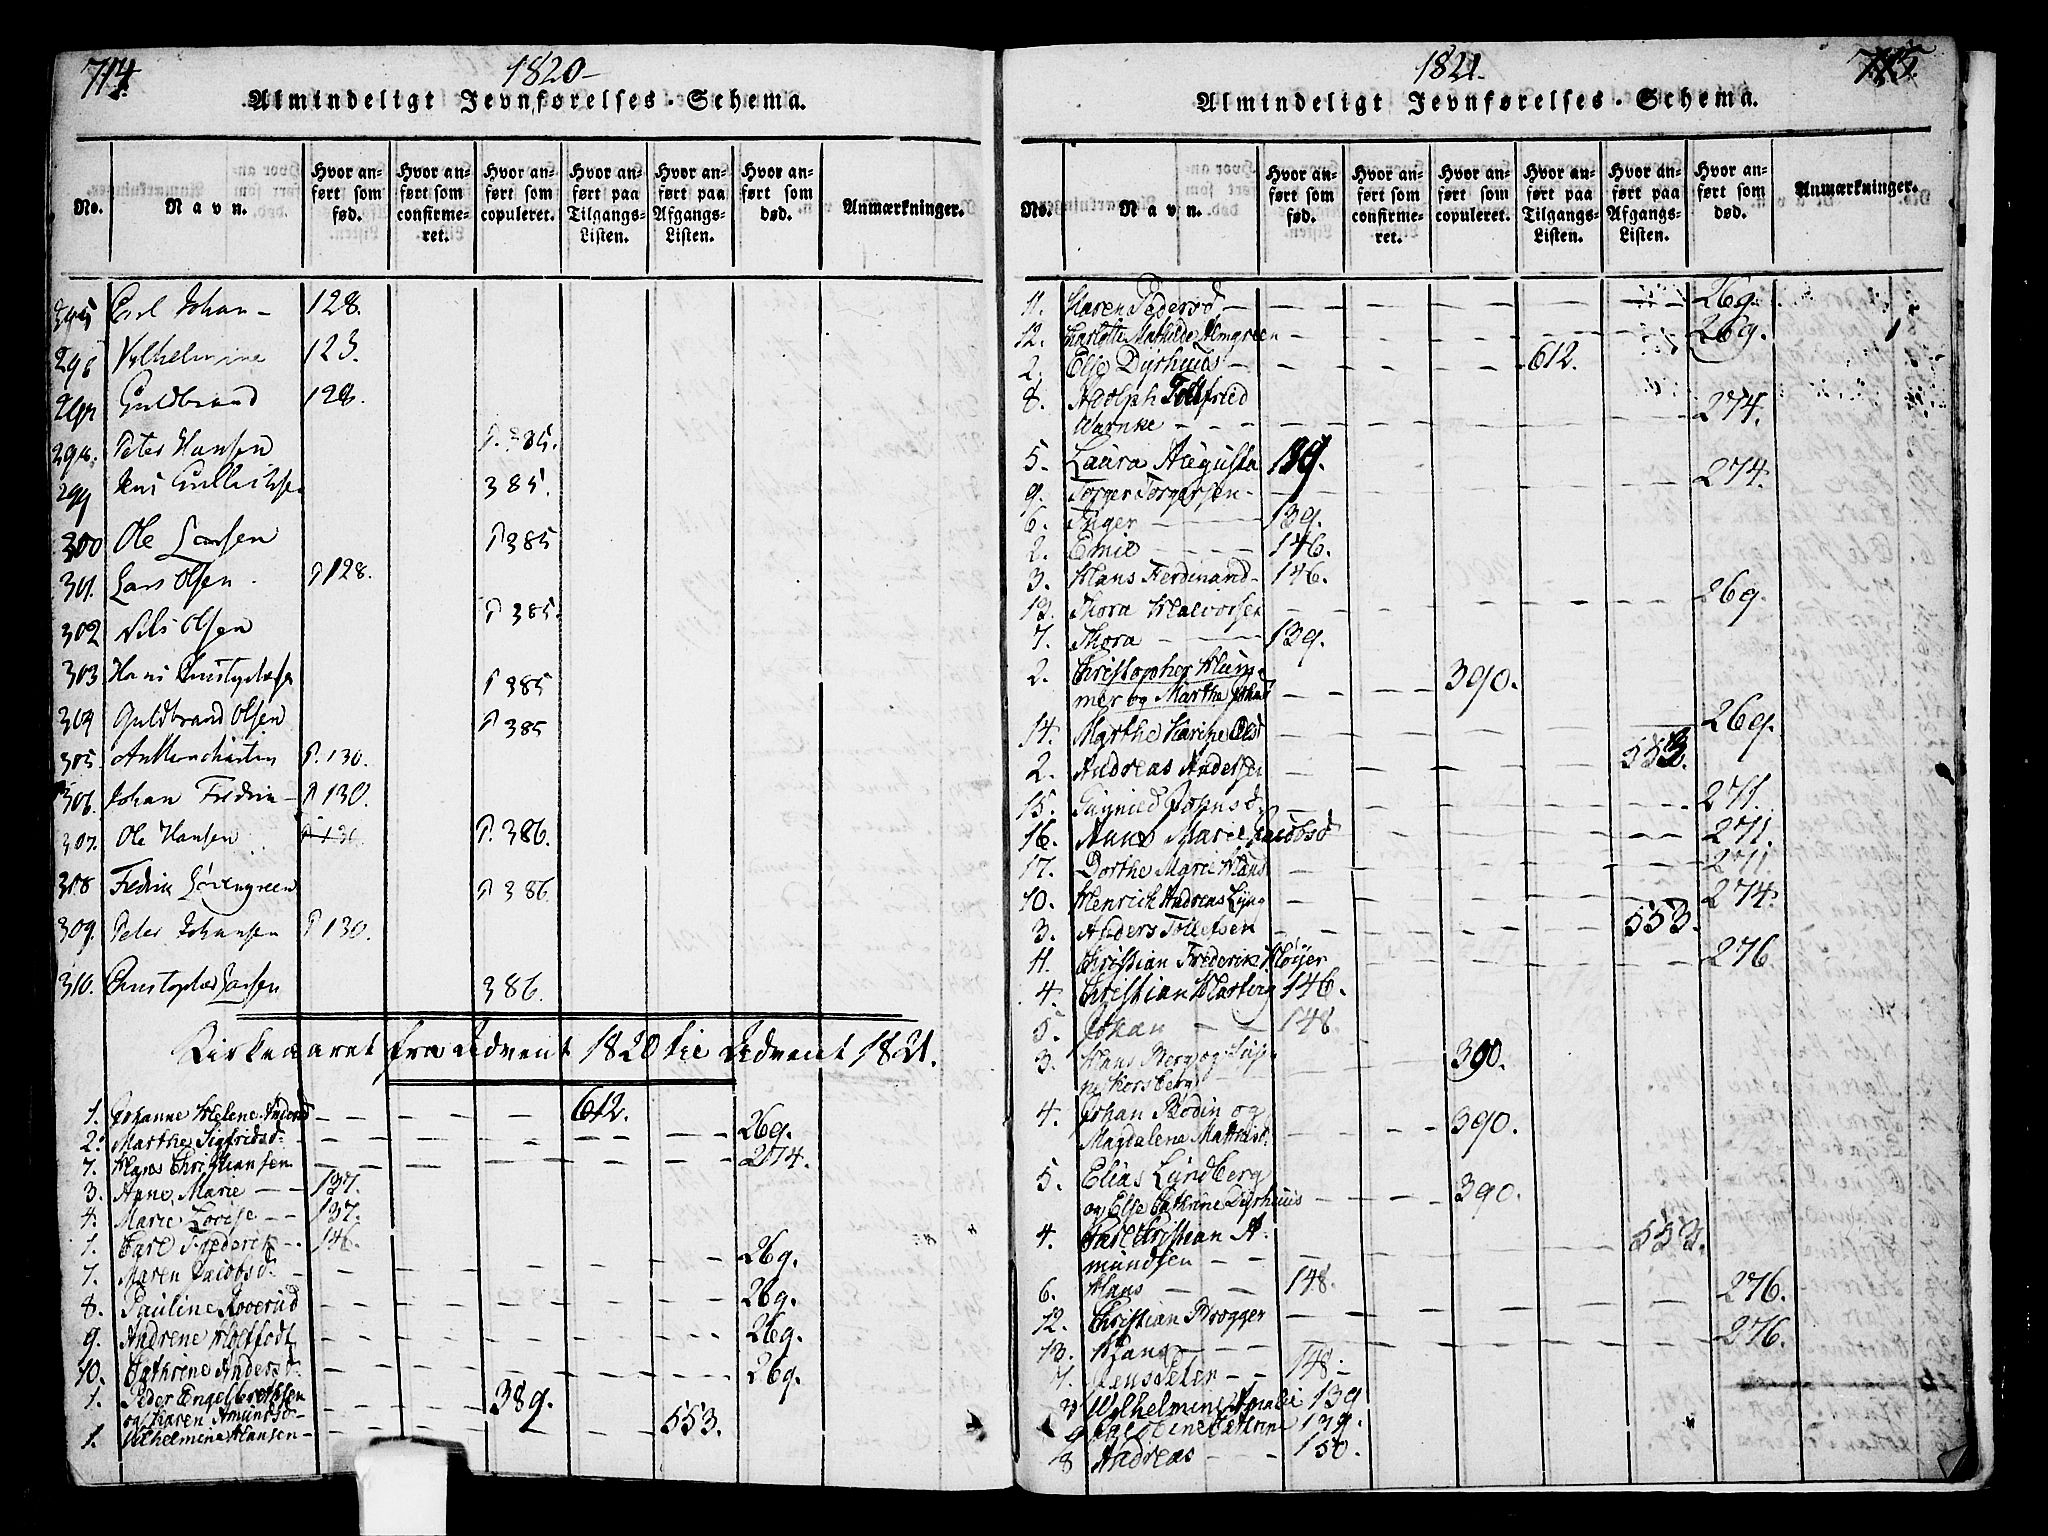 714. 1820
Almindeligt Jevnførelses-Schema.
No. Navn. Hvor anført som fød. Hvor anført som confirmeret. Hvor anført som copuleret. Hvor anført paa Tilgangs-Listen. Hvor anført paa Afgangs-Listen. Hvor anført som død. Anmærkninger.
295 Carl Johan - 128.
296 Vilhelmine 123.
297 Guldbrand 128.
298. Peter Hansen P. 385.
299 385.
300 Ole Larsen P 385
301. Lars Olsen P 128.
302 Nils Olsen P 385.
303 Hans P 385
304 Guldbrand Olsen P 385
305. P. 130.
306. Johan Fredrik - P 130.
307. Ole Hansen P 130 P. 386.
308 Fredrik P 386
309. Peter Johansen P 130.
310. Christopher Larsen 386.
Kirkeaaret fra Advent 1820 til Advent 1821.
1. Johanne Helene Andersd - - - 612.
2. Marthe Sigfridsd. - - - 269.
7. Hans Christiansen - - - 274.
3. Anne Marie - - 137.
4. Marie Lovise - - 137.
1. Carl Frederik - - 146.
7. Maren Jacobsd. - - - 269.
8. Pauline Roverud - - - 269.
9. Andrene Holtfodt - - - 269.
10. Cathrine Andersd. - - - 269.
1. Peder Engelbrethsen
og Karen Amundsd. - - - 389.
1. Vilhelmine Hansen - - - 553.
1821. 715.
Almindeligt Jevnførelses-Schema.
No. Navn. Hvor anført som fød. Hvor anført som confirmeret. Hvor anført som copuleret. Hvor anført paa Tilgangs-Listen. Hvor anført paa Afgangs-Listen. Hvor anført som død. Anmærkninger.
11. Karen Pedersd. - - - 269.
12. Charlotte Mathilde Almgreen - - - 269.
2. Else Dyrhuus - - - 612.
8. Adolph Totfried
Warnke - - - 274.
5. Laura Augusta 139.
9. Torger Torgersen - - - 274.
6. Inger - - - 139.
2. Emil - - - 146.
3. Hans Ferdinand - 146.
13. Thora Halvorsen - - - 269.
7. Thora - - - 139.
2. Christopher Hum-
mer og Marthe - - - 390.
14. Marthe Karine Olsd - - - 269.
2. Andreas Andersen - - - 553.
15. Johnsd. - - - 271.
16. Anne Marie Jacobsd - - - 271.
17. Dorthe Marie Hans - - - 271.
10. Henrich Andreas Lyng - - - 274.
3. Anders Tollefsen - - - 553.
11. Christian Frederik Kløyer 276
4. Christian Harberg 146.
5. Johan - - 148.
3. Hans Berg og
- - - 390.
4. Johan Bodin og
Magdalene - - - 390.
5. Elias Lundberg
og Else Cathrine Dyrhuus - - - 390.
4. Carl Christian A-
mundsen - - - 553.
6. Hans - - - 148.
12. Christian Brøgger - - - 276.
13. Hans - - - 276.
7. Jens Peter - - 148.
Vilhelmine Amalie 139
Cathrine 139.
8 Andreas - - - 150.